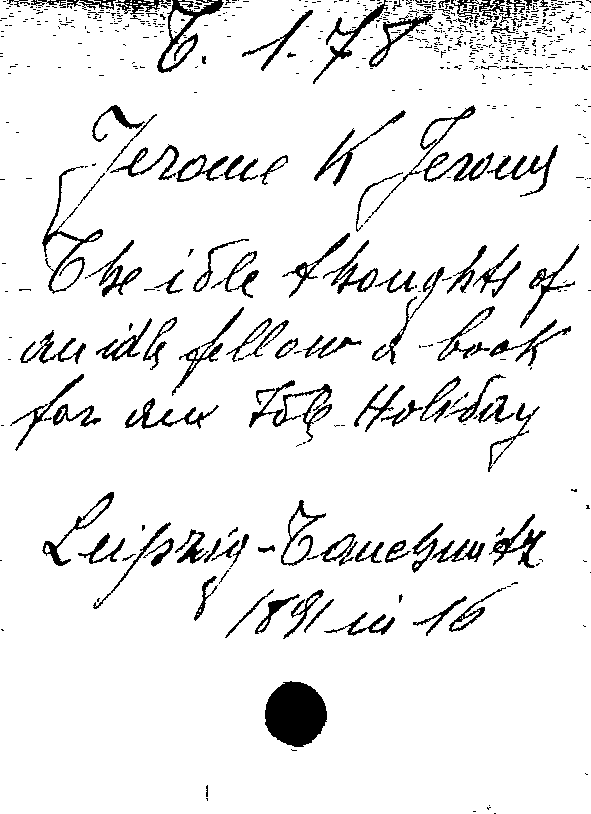 T. 1.78
Jerome K Jerome
The idle thoughts of
an idle fellow a book
for an Idle Holiday
Leipzig-Tauchnitz
1891 in 16